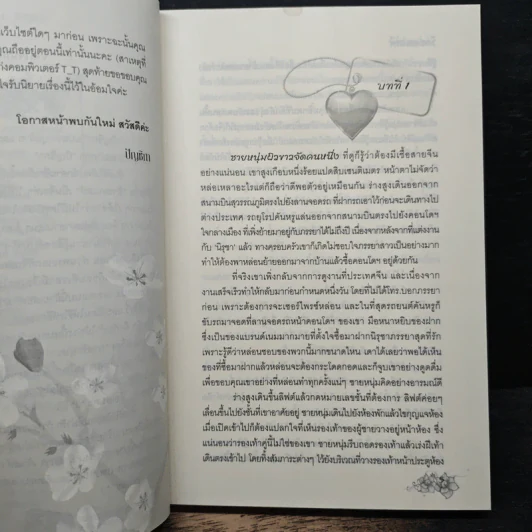 เว็บไซต์ใดๆ มาก่อน เพราะฉะนั้นคุณ
คุณถืออยู่ตอนนี้เท่านั้นนะคะ (สาเหตุที่
คอมพิวเตอร์ T_T) สุดท้ายขอขอบคุณ
รับนิยายเรื่องนี้ไว้ในอ้อมใจค่ะ
โอกาสหน้าพบกันใหม่ สวัสดีค่ะ
บทที่ 1
ชายหนุ่มผิวขาวจัดคนหนึ่ง ที่ดูก็รู้ว่าต้องมีเชื้อสายจีน
อย่างแน่นอน เขาสูงเกือบหนึ่งร้อยแปดสิบเซนติเมตร หน้าตาไม่จัดว่า
หล่อเหลาอะไรแต่ก็ถือว่าดีพอตัวอยู่เหมือนกัน ร่างสูงเดินออกจาก
สนามบินสุวรรณภูมิตรงไปยังลานจอดรถ ที่ฝากรถเอาไว้ก่อนจะเดินทางไป
ต่างประเทศ รถยุโรปคันหรูแล่นออกจากสนามบินตรงไปยังคอนโดฯ
ใจกลางเมือง ที่เพิ่งย้ายมาอยู่กับภรรยาได้ไม่ถึงปี เนื่องจากหลังจากที่แต่งงาน
กับ 'นิรุชา' แล้ว ทางครอบครัวเขาก็เกิดไม่ชอบใจภรรยาสาวเป็นอย่างมาก
ทำให้ต้องพาหล่อนย้ายออกมาจากบ้านแล้วซื้อคอนโดฯ อยู่ด้วยกัน
ที่จริงเขาเพิ่งกลับจากการดูงานที่ประเทศจีน และเนื่องจาก
งานเสร็จเร็วทำให้กลับมาก่อนกำหนดหนึ่งวัน โดยที่ไม่ได้โทร.บอกภรรยา
ก่อน เพราะต้องการจะเซอร์ไพรซ์หล่อน และในที่สุดรถยนต์คันหรูก็
ขับรถมาจอดที่ลานจอดรถหน้าคอนโดฯ ของเขา มือหนาหยิบของฝาก
ซึ่งเป็นของแบรนด์เนมมากมายที่ตั้งใจซื้อมาฝากนิรุชาภรรยาสุดที่รัก
เพราะรู้ดีว่าหล่อนชอบของพวกนี้มากขนาดไหน เดาได้เลยว่าพอได้เห็น
ของที่ซื้อมาฝากแล้วหล่อนจะต้องกระโดดกอดและก็จูบเขาอย่างดูดดื่ม
เพื่อขอบคุณเขาอย่างที่หล่อนทำทุกครั้งแน่ๆ ชายหนุ่มคิดอย่างอารมณ์ดี
ร่างสูงเดินขึ้นลิฟต์แล้วกดหมายเลขชั้นที่ต้องการ ลิฟต์ค่อยๆ
เลื่อนขึ้นไปยังชั้นที่เขาอาศัยอยู่ ชายหนุ่มเดินไปยังห้องพักแล้วไขกุญแจห้อง
เมื่อเปิดเข้าไปก็ต้องแปลกใจที่เห็นรองเท้าของผู้ชายวางอยู่หน้าห้อง ซึ่ง
แน่นอนว่ารองเท้าคู่นี้ไม่ใช่ของเขา ชายหนุ่มรีบถอดรองเท้าแล้วเร่งฝีเท้า
เดินตรงเข้าไป โดยทิ้งสัมภาระต่างๆ ไว้ยังบริเวณที่วางรองเท้าหน้าประตูห้อง